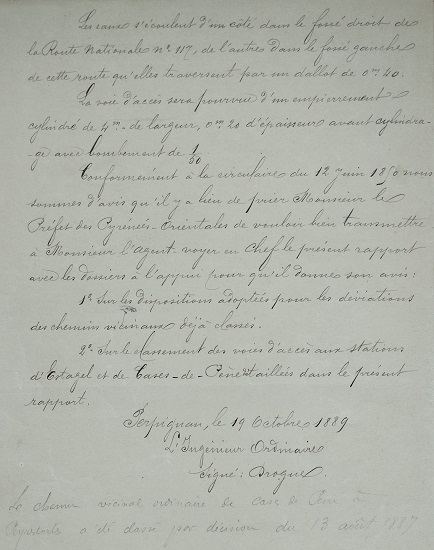 Les eaux s'écoulent d'un côté dans le fossé droit de
la Route Nationale n° 117, de l'autre dans le fossé gauche
de cette route qu'elles traversent par un dallot de 0m40.
La voie d'accès sera pourvue d'un empierrement
cylindré de 4m_ de largeur, 0m20 d'épaisseur avant cylindra-
ge avec bombement de 1/50
Conformément à la circulaire du 12 juin 1850 nous
sommes d'avis qu'il y a lieu de prier Monsieur le
Préfet des Pyrénées-Orientales de vouloir bien transmettre
à Monsieur l'agent-voyer en chef le présent rapport
avec les dossiers à l'appui pour qu'il donne son avis:
1° Sur les dispositions adoptées pour les déviations
des chemins vicinaux déjà classés.
2° Sur le classement des voies d'accès aux stations
d'Estagel et de Cases-de-Pène détaillées dans le présent
rapport.
Perpignan, le 19 Octobre 1889
L'Ingénieur Ordinaire
Signé: Drogue.
Le chemin vicinal ordinaire de Case de Pene à
a été classé par décision du 13 août 1887